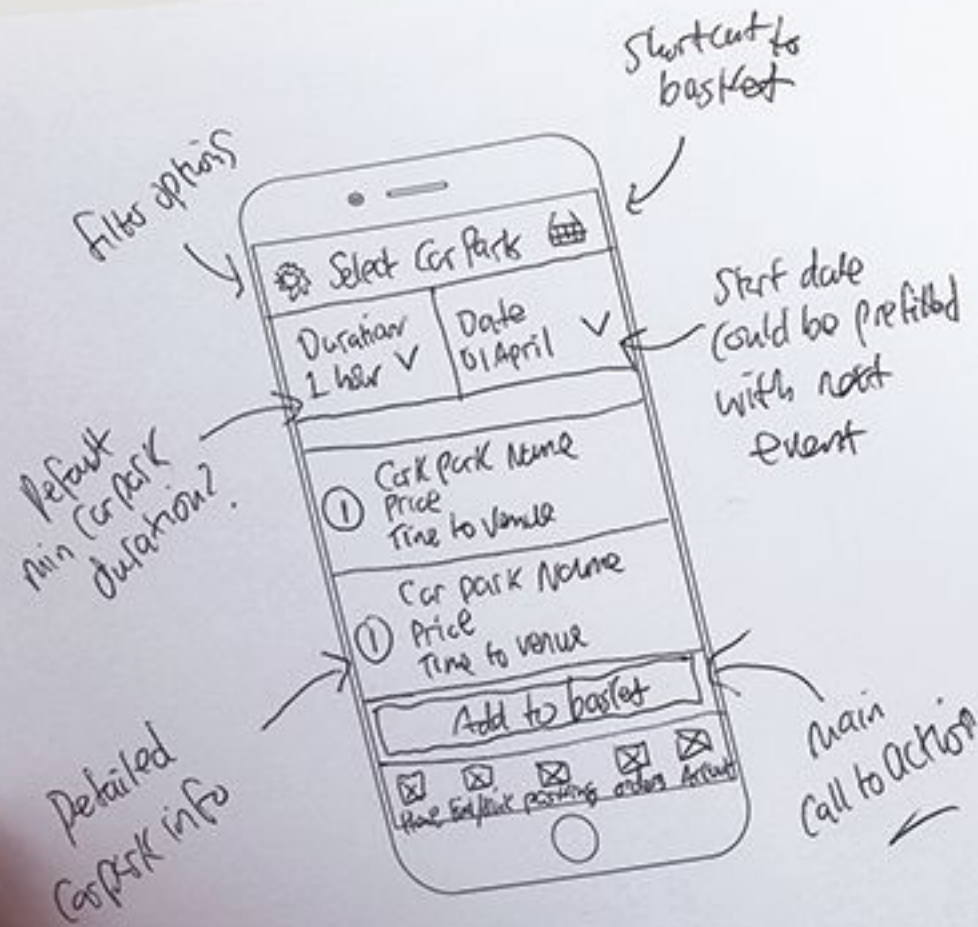 Shortcut to
basket
filter options
Select Car Park
Duration
1 hour
Date
01 April
Start date
could be prefilled
with next
event
Default
min Car park
duration?
Cark park Name
Price
Time to Venue
Car park Name
Price
Time to venue
Add to basket
Home parking orders Account
Detailed
Car park info
Main
Call to action